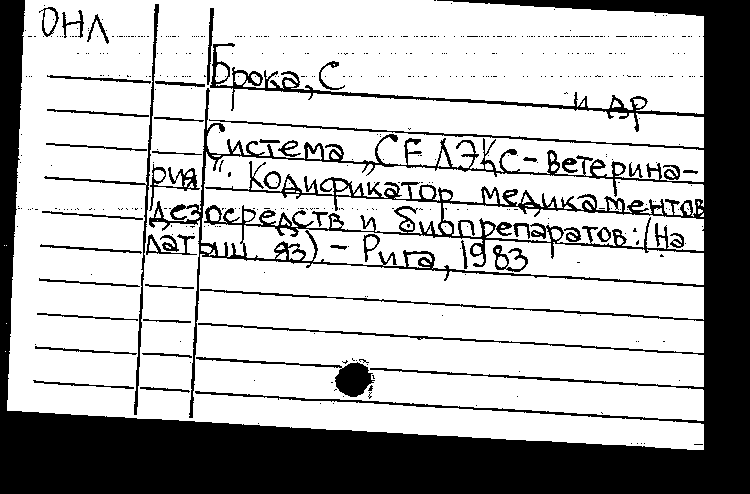 ОНЛ
Брока, С
и др
Система „СЕЛЭКС-ветерина-
рия“. Кодификатор медикаментов
дезосредств и биопрепаратов: (На
латыш. яз). - Рига, 1983